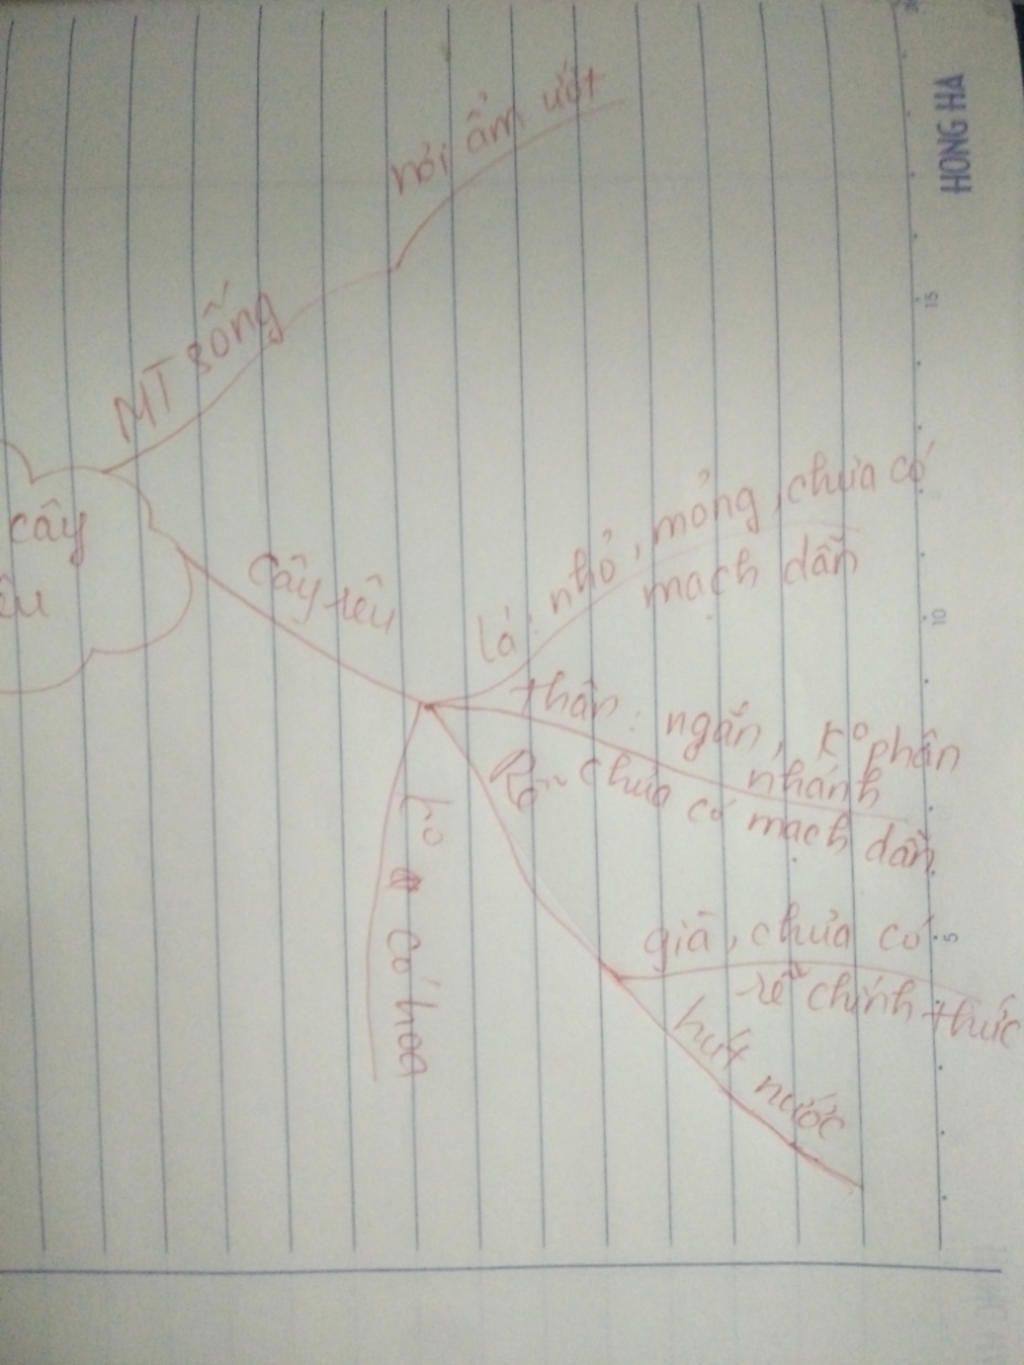 HONG HA
nơi ẩm ướt
MT sống
cây
êu
Cây rêu
lá: nhỏ, mỏng, chưa có
mạch dẫn
thân: ngắn, k° phân
nhánh
chưa có mạch dẫn
Rễ
giả, chưa có
rễ chính thức
hút nước
có hoa
15
10
5